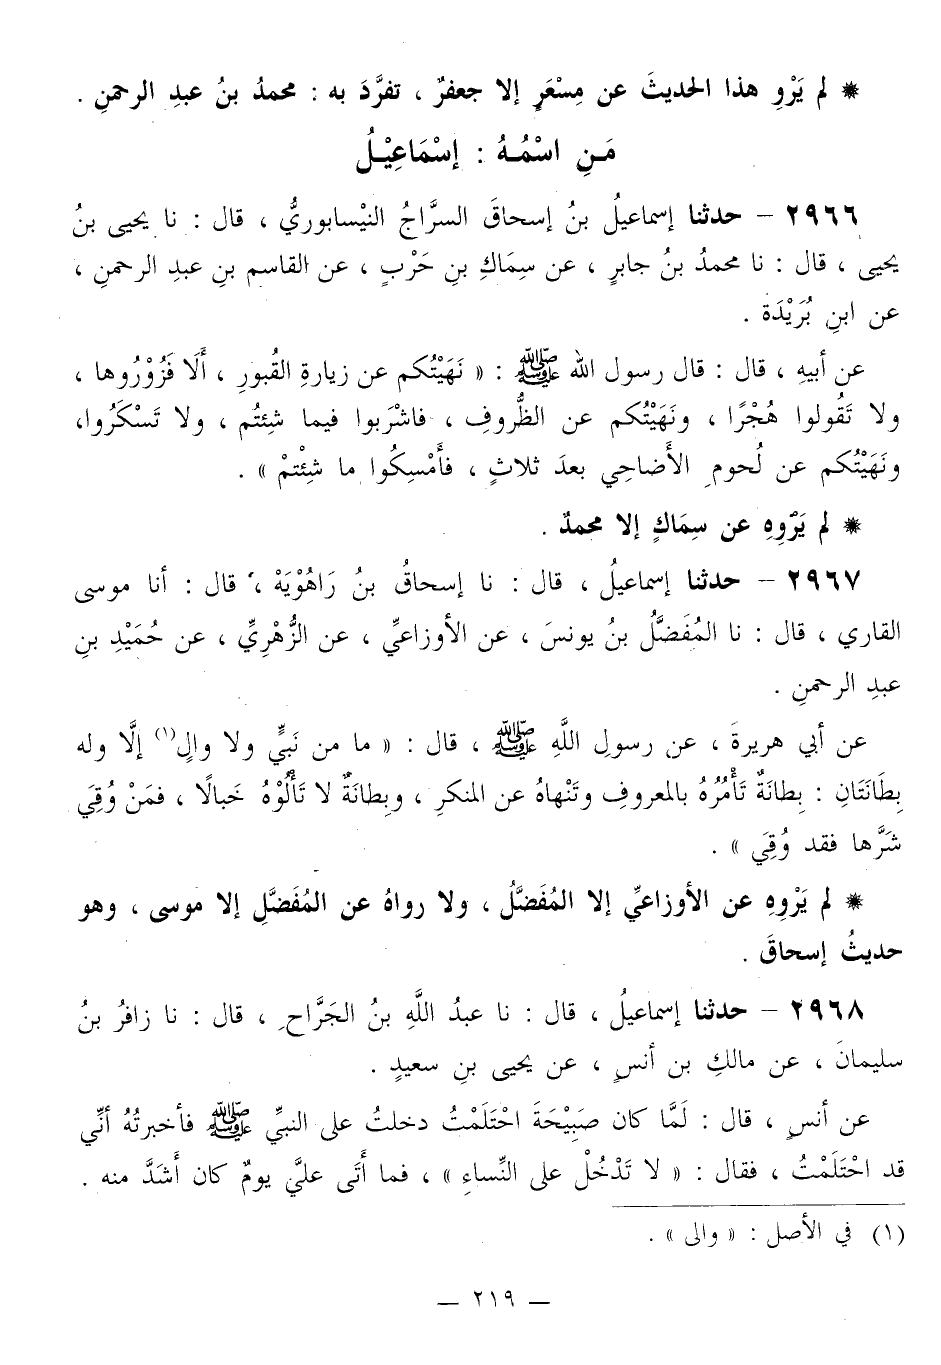 * لم يَرْوِ هذا الحديثَ عن مِسْعَرٍ إلا جعفرٌ ، تفرَّدَ به : محمدُ بنُ عبدِ الرحمنِ .
مَنِ اسْمُهُ : إسْمَاعِيْلُ
٢٩٦٦ – حدثنا إسماعيلُ بنُ إسحاقَ السراجُ النيْسابوريُّ ، قال : نا يحيى بنُ
يحيى ، قال : نا محمدُ بنُ جابرٍ ، عن سِمَاكِ بنِ حَرْبٍ ، عن القاسم بنِ عبدِ الرحمنِ ،
عن ابنِ بُرَيْدَة .
عن أبيهِ ، قال : قال رسول الله ﷺ : « نَهَيْتُكم عن زيارةِ القُبورِ ، أَلَا فَزُوْرُوها ،
ولا تَقُولوا هُجْرًا ، ونَهَيْتُكم عن الظُّروفِ ، فاشْرَبوا فيما شِئتُم ، ولا تَسْكَرُوا،
ونَهَيْتُكم عن لُحومِ الأضاحِي بعدَ ثلاثٍ ، فأَمْسِكُوا ما شِئْتمْ » .
* لم يَرْوِهِ عن سِمَاكٍ إلا محمدٌ .
٢٩٦٧ – حدثنا إسماعيلُ ، قال : نا إسحاقُ بنُ رَاهُوْيَهْ ، قال : أنا موسى
القاري ، قال : نا المُفَضَّلُ بنُ يونسَ ، عن الأوزاعيِّ ، عن الزُّهْرِيِّ ، عن حُمَيْدِ بنِ
عبدِ الرحمنِ .
عن أبي هريرةَ ، عن رسولِ اللَّهِ ﷺ ، قال : « ما من نَبيٍّ ولا والٍ(١) إلَّا وله
بِطَانَتَانِ : بِطانةٌ تَأْمُرُهُ بالمعروفِ وتَنْهاهُ عن المنكرِ ، وبِطانةٌ لا تَأْلُوْهُ خَبالًا ، فمَنْ وُقِيَ
شَرَّها فقد وُقِيَ » .
* لم يَرْوِهِ عن الأوزاعيِّ إلا المُفَضَّلُ ، ولا رواهُ عن المُفَضَّلِ إلا موسى ، وهو
حديثُ إسحاقَ .
٢٩٦٨ – حدثنا إسماعيلُ ، قال : نا عبدُ اللَّهِ بنُ الجَرَّاحِ ، قال : نا زافرُ بنُ
سليمانَ ، عن مالكِ بن أنسٍ ، عن يحيى بنِ سعيدٍ .
عن أنسٍ ، قال : لَمَّا كان صَبِيْحَةَ احْتَلَمْتُ دخلتُ على النبيِّ ﷺ فأخبرتُهُ أنِّي
قد احْتَلَمْتُ ، فقال : « لا تَدْخُلْ على النِّساءِ » ، فما أَتَى عليَّ يومٌ كان أَشَدَّ منه .
(١) في الأصل : « والى » .
– ٢١٩ –